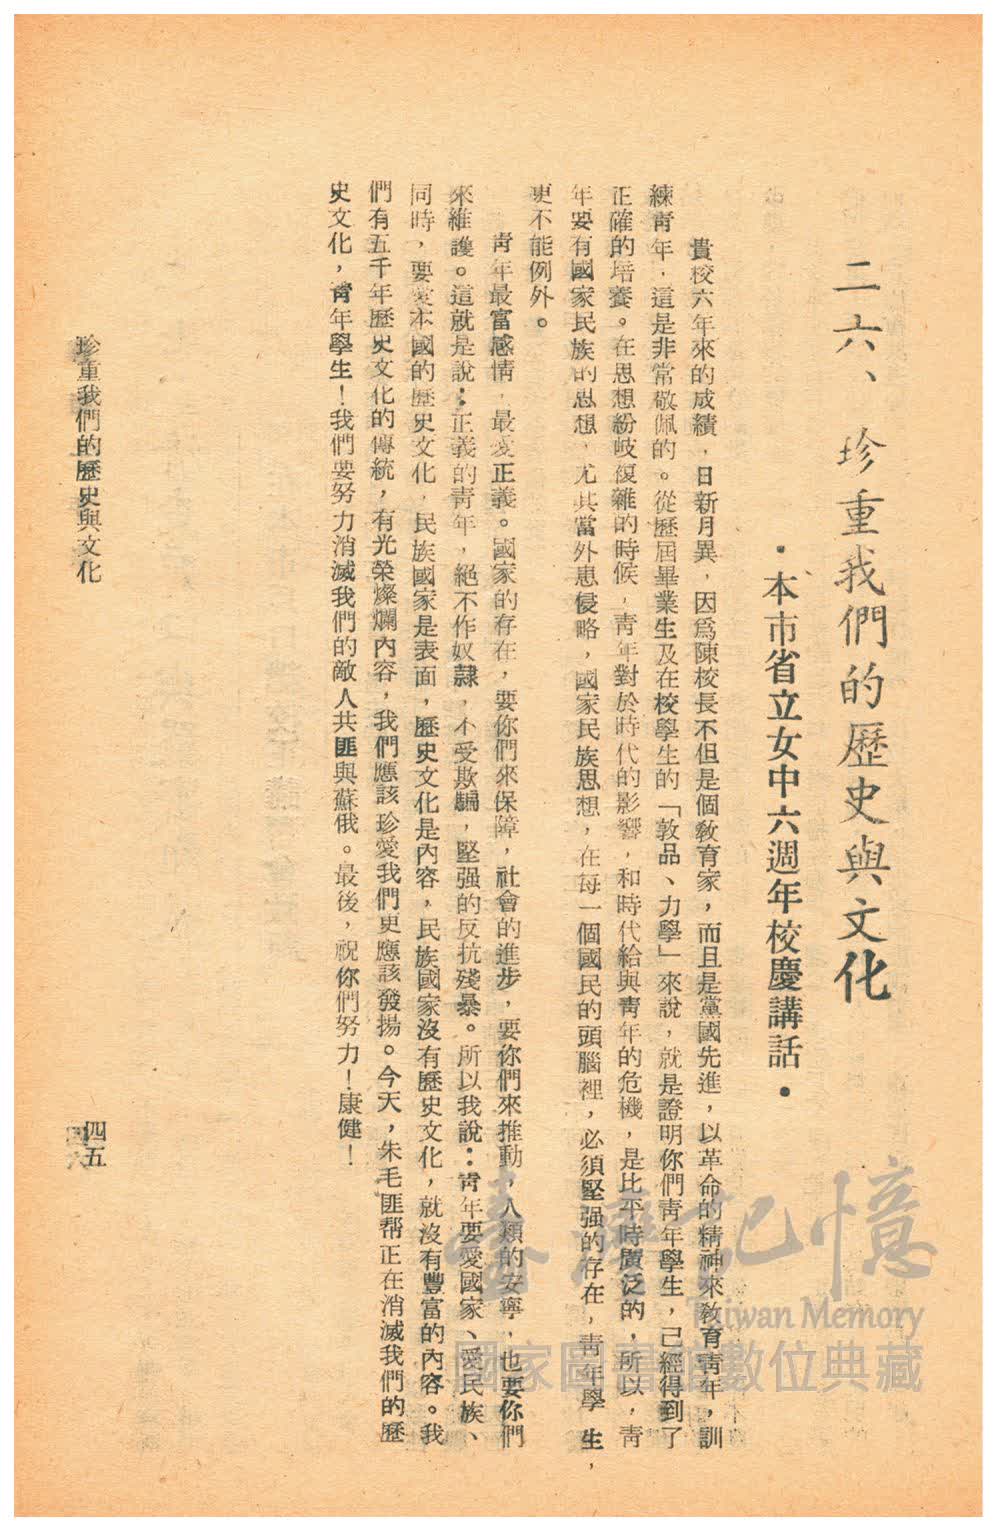 二六、珍重我們的歷史與文化
•本市省立女中六週年校慶講話•
貴校六年來的成績，日新月異，因爲陳校長不但是個敎育家，而且是黨國先進，以革命的精神來敎育靑年，訓
練靑年，這是非常敬佩的。從歷屆畢業生及在校學生的「敦品、力學」來說，就是證明你們靑年學生，已經得到了
正確的培養。在思想紛岐復雜的時候，靑年對於時代的影響，和時代給與靑年的危機，是比平時廣泛的，所以，靑
年要有國家民族的思想，尤其當外患侵略，國家民族思想，在每一個國民的頭腦裡，必須堅强的存在，靑年學生，
更不能例外。
靑年最富感情，最愛正義。國家的存在，要你們來保障，社會的進步，要你們來推動，人類的安寧，也要你們
來維護。這就是說：正義的靑年，絕不作奴隸，不受欺騙，堅强的反抗殘暴。所以我說：靑年要愛國家、愛民族、
同時，要愛本國的歷史文化，民族國家是表面，歷史文化是內容，民族國家沒有歷史文化，就沒有豐富的內容。我
們有五千年歷史文化的傳統，有光榮燦爛內容，我們應該珍愛我們更應該發揚。今天，朱毛匪帮正在消滅我們的歷
史文化，靑年學生！我們要努力消滅我們的敵人共匪與蘇俄。最後，祝你們努力！康健！
珍重我們的歷史與文化
四五
臺灣記憶
Taiwan Memory
國家圖書館數位典藏